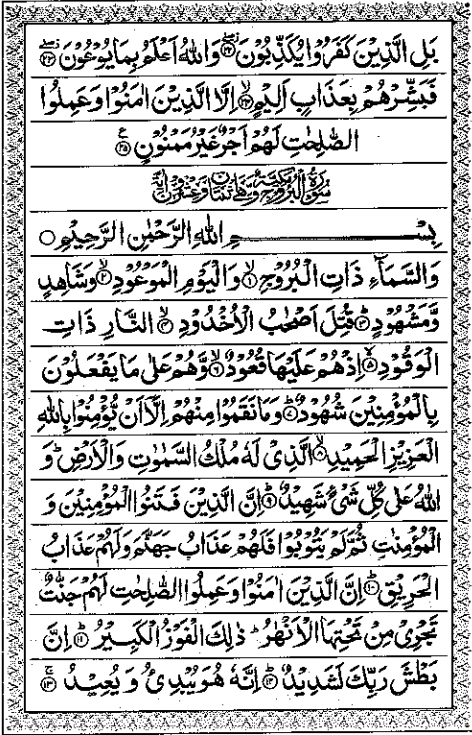 بَلِ الَّذِيْنَ كَفَرُوْا يُكَذِّبُوْنَ ﴿۲۲﴾ وَاللّٰهُ اَعْلَمُ بِمَا يُوْعُوْنَ ﴿۲۳﴾
فَبَشِّرْهُمْ بِعَذَابٍ اَلِيْمٍ ﴿۲۴﴾ اِلَّا الَّذِيْنَ اٰمَنُوْا وَعَمِلُوا
الصّٰلِحٰتِ لَهُمْ اَجْرٌ غَيْرُ مَمْنُوْنٍ ﴿۲۵﴾
سُوْرَةُ الْبُرُوْجِ مَكِّيَّةٌ وَّهِيَ اثْنَتَانِ وَعِشْرُوْنَ اٰيَةً
بِسْمِ اللّٰهِ الرَّحْمٰنِ الرَّحِيْمِ ○
وَالسَّمَآءِ ذَاتِ الْبُرُوْجِ ﴿۱﴾ وَالْيَوْمِ الْمَوْعُوْدِ ﴿۲﴾ وَشَاهِدٍ
وَّمَشْهُوْدٍ ﴿۳﴾ قُتِلَ اَصْحٰبُ الْاُخْدُوْدِ ﴿۴﴾ النَّارِ ذَاتِ
الْوَقُوْدِ ﴿۵﴾ اِذْ هُمْ عَلَيْهَا قُعُوْدٌ ﴿۶﴾ وَّهُمْ عَلٰى مَا يَفْعَلُوْنَ
بِالْمُؤْمِنِيْنَ شُهُوْدٌ ﴿۷﴾ وَمَا نَقَمُوْا مِنْهُمْ اِلَّا اَنْ يُّؤْمِنُوْا بِاللّٰهِ
الْعَزِيْزِ الْحَمِيْدِ ﴿۸﴾ الَّذِيْ لَهٗ مُلْكُ السَّمٰوٰتِ وَالْاَرْضِ ؕ وَ
اللّٰهُ عَلٰى كُلِّ شَيْءٍ شَهِيْدٌ ﴿۹﴾ اِنَّ الَّذِيْنَ فَتَنُوا الْمُؤْمِنِيْنَ وَ
الْمُؤْمِنٰتِ ثُمَّ لَمْ يَتُوْبُوْا فَلَهُمْ عَذَابُ جَهَنَّمَ وَلَهُمْ عَذَابُ
الْحَرِيْقِ ﴿۱۰﴾ اِنَّ الَّذِيْنَ اٰمَنُوْا وَعَمِلُوا الصّٰلِحٰتِ لَهُمْ جَنّٰتٌ
تَجْرِيْ مِنْ تَحْتِهَا الْاَنْهٰرُ ؕ ذٰلِكَ الْفَوْزُ الْكَبِيْرُ ﴿۱۱﴾ اِنَّ
بَطْشَ رَبِّكَ لَشَدِيْدٌ ﴿۱۲﴾ اِنَّهٗ هُوَ يُبْدِئُ وَيُعِيْدُ ﴿۱۳﴾